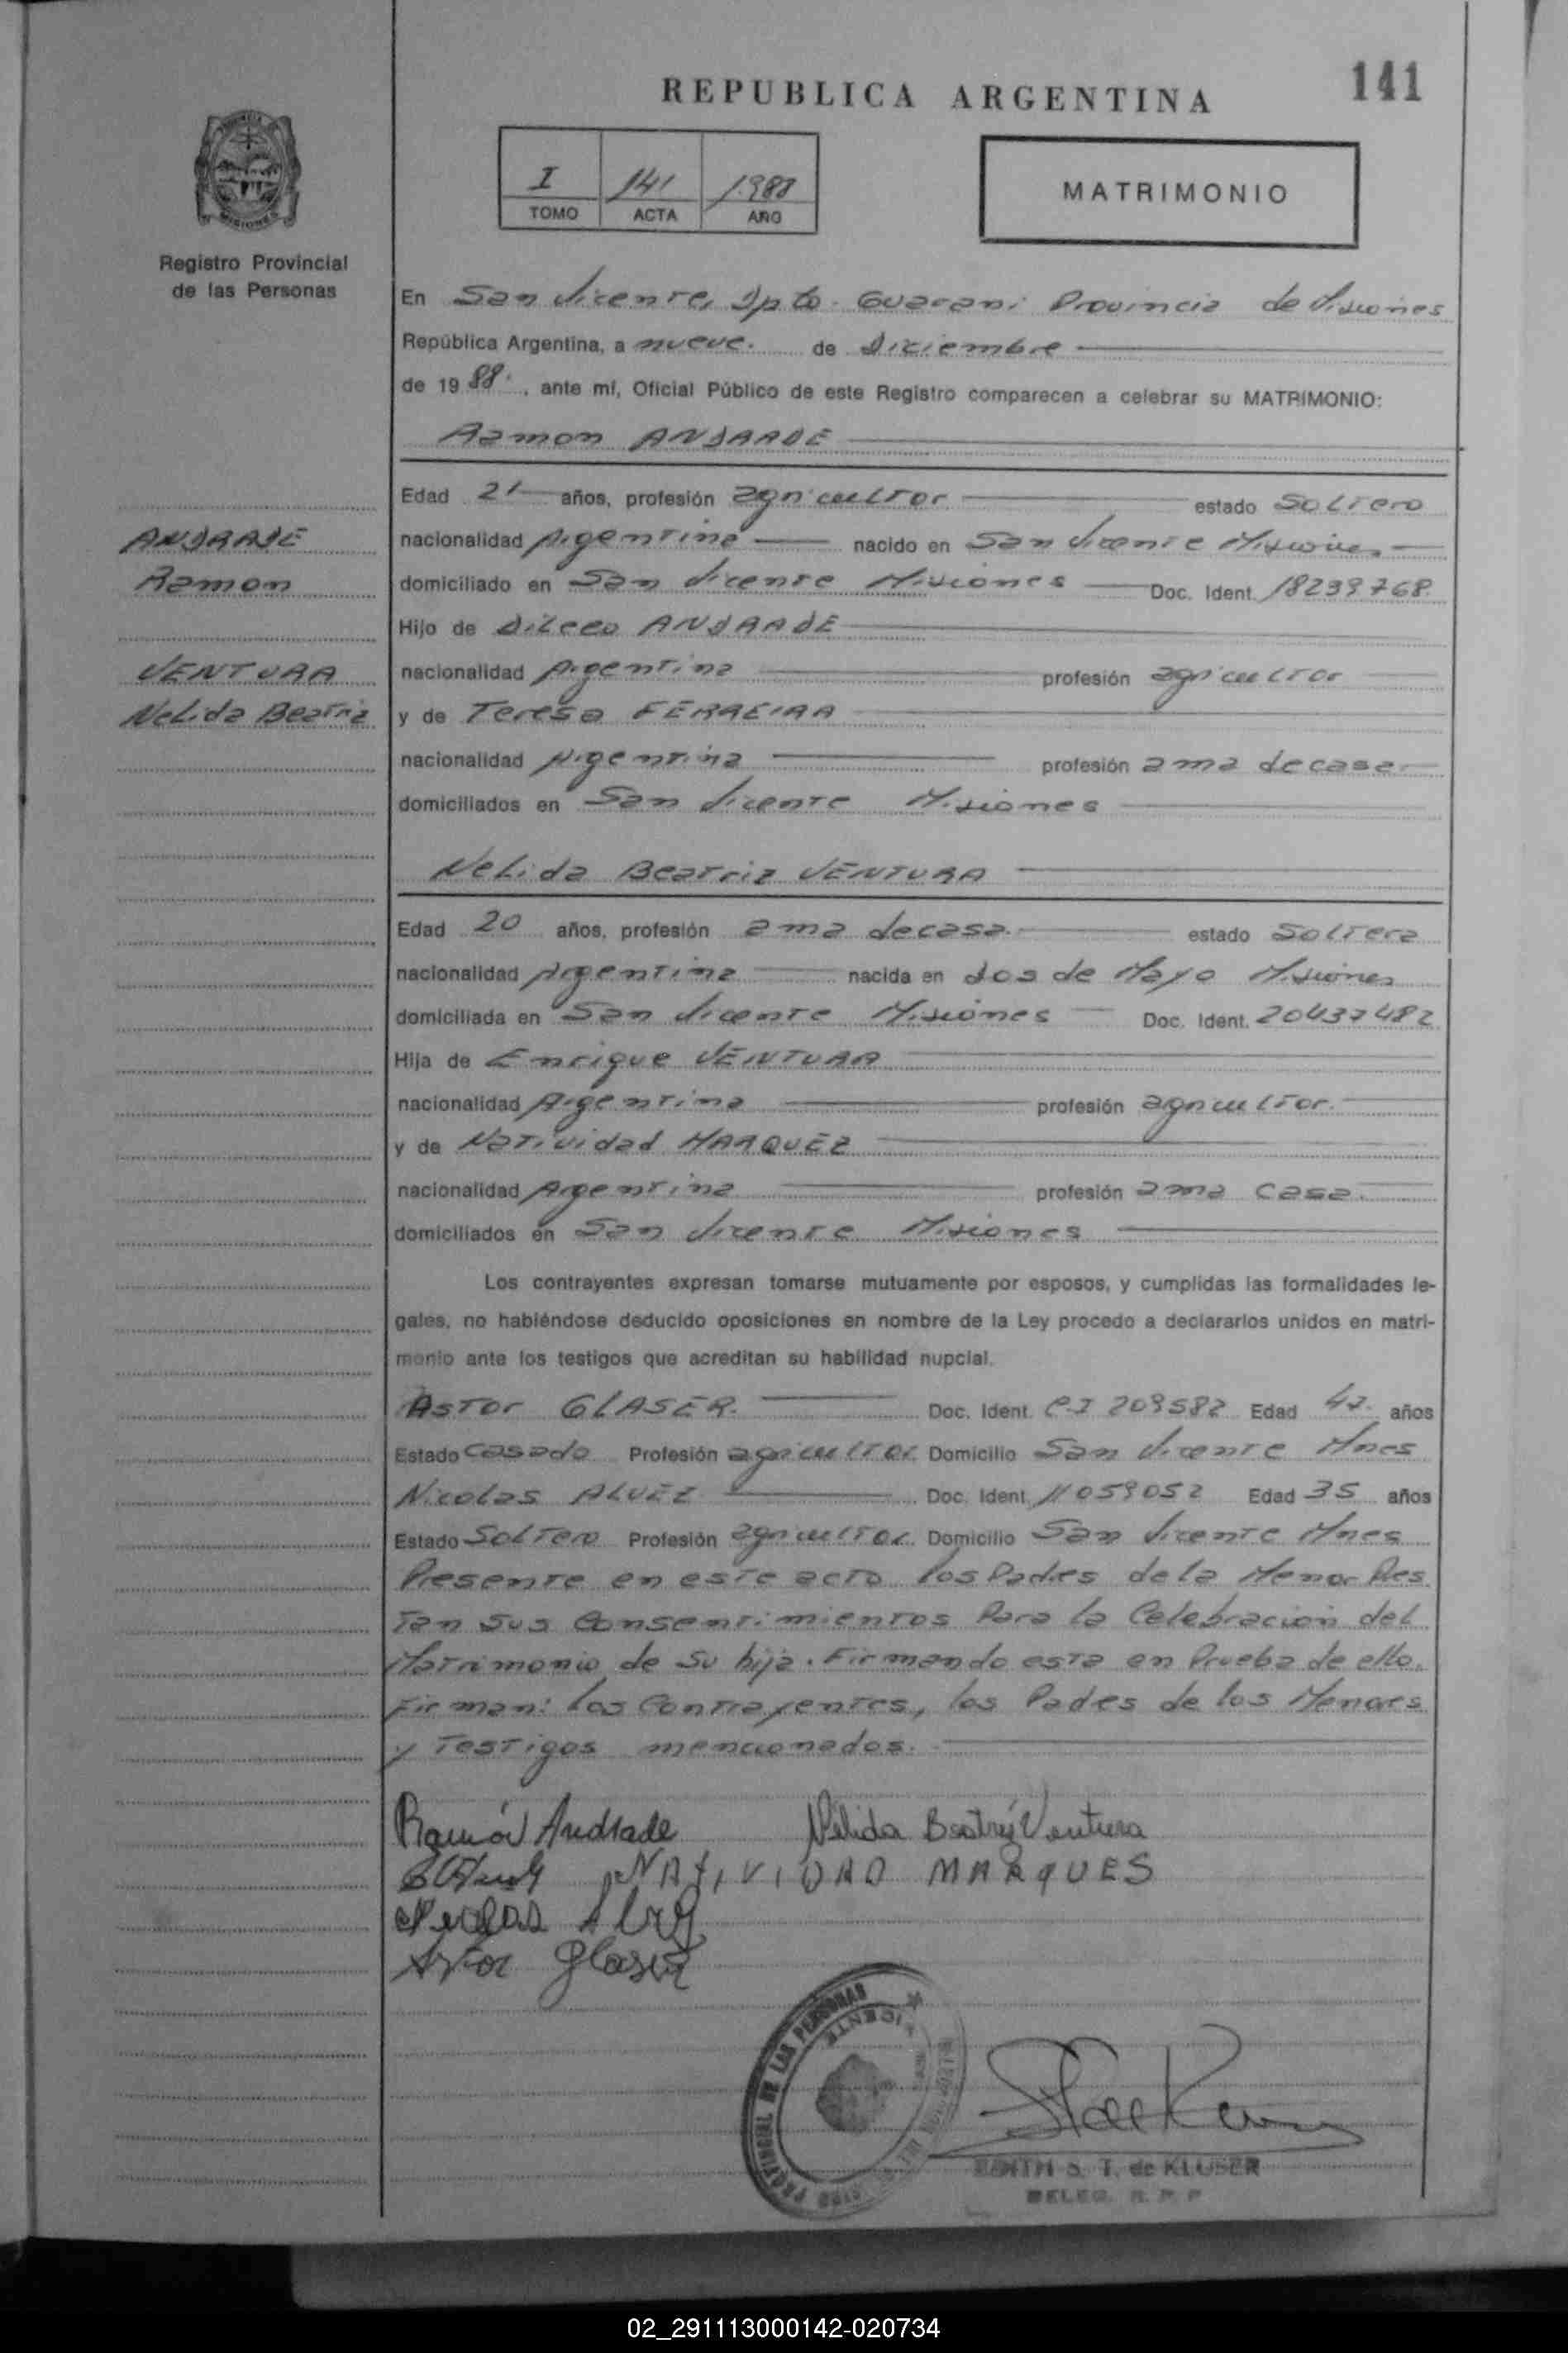 141
REPUBLICA ARGENTINA
I 141 1988
TOMO ACTA AÑO
MATRIMONIO
PROVINCIA DE MISIONES
Registro Provincial
de las Personas
En San Vicente, Dpto. Guarani Provincia de Misiones
República Argentina, a nueve. de Diciembre
de 1988., ante mí, Oficial Público de este Registro comparecen a celebrar su MATRIMONIO:
Ramon ANDRADE
Edad 21 años, profesión agricultor estado Soltero
ANDRADE
nacionalidad Argentina nacido en San Vicente Misiones
Ramon
domiciliado en San Vicente Misiones Doc. Ident. 18239768
Hijo de Dilceo ANDRADE
VENTURA
nacionalidad Argentina profesión agricultor
Nelida Beatriz
y de Teresa FERREIRA
nacionalidad Argentina profesión ama de casa
domiciliados en San Vicente Misiones
Nelida Beatriz VENTURA
Edad 20 años, profesión ama de casa. estado Soltera
nacionalidad Argentina nacida en Dos de Mayo Misiones
domiciliada en San Vicente Misiones Doc. Ident. 20437482
Hija de Enrique VENTURA
nacionalidad Argentina profesión agricultor.
y de Natividad MARQUEZ
nacionalidad Argentina profesión ama casa.
domiciliados en San Vicente Misiones
Los contrayentes expresan tomarse mutuamente por esposos, y cumplidas las formalidades le-
gales, no habiéndose deducido oposiciones en nombre de la Ley procedo a declararlos unidos en matri-
monio ante los testigos que acreditan su habilidad nupcial.
Astor GLASER. Doc. Ident. C.I 209582 Edad 47. años
Estado Casado Profesión agricultor Domicilio San Vicente Mnes
Nicolas ALVEZ Doc. Ident. 11059052 Edad 35 años
Estado Soltero Profesión agricultor. Domicilio San Vicente Mnes
Presente en este acto los Padres de la Menor Pres
tan sus Consentimientos Para la Celebracion del
Matrimonio de su hija. Firmando esta en Prueba de ello.
Firman: los Contrayentes, los Padres de los Menores
y Testigos mencionados.
Ramón Andrade Nélida Beatriz Ventura
NATIVIDAD MARQUES
Nicolas Alvez
Astor Glaser
PROVINCIAL DE LAS PERSONAS
VICENTE
EDITH S. T. de KLUSER
DELEG. R. P. P
02_291113000142-020734